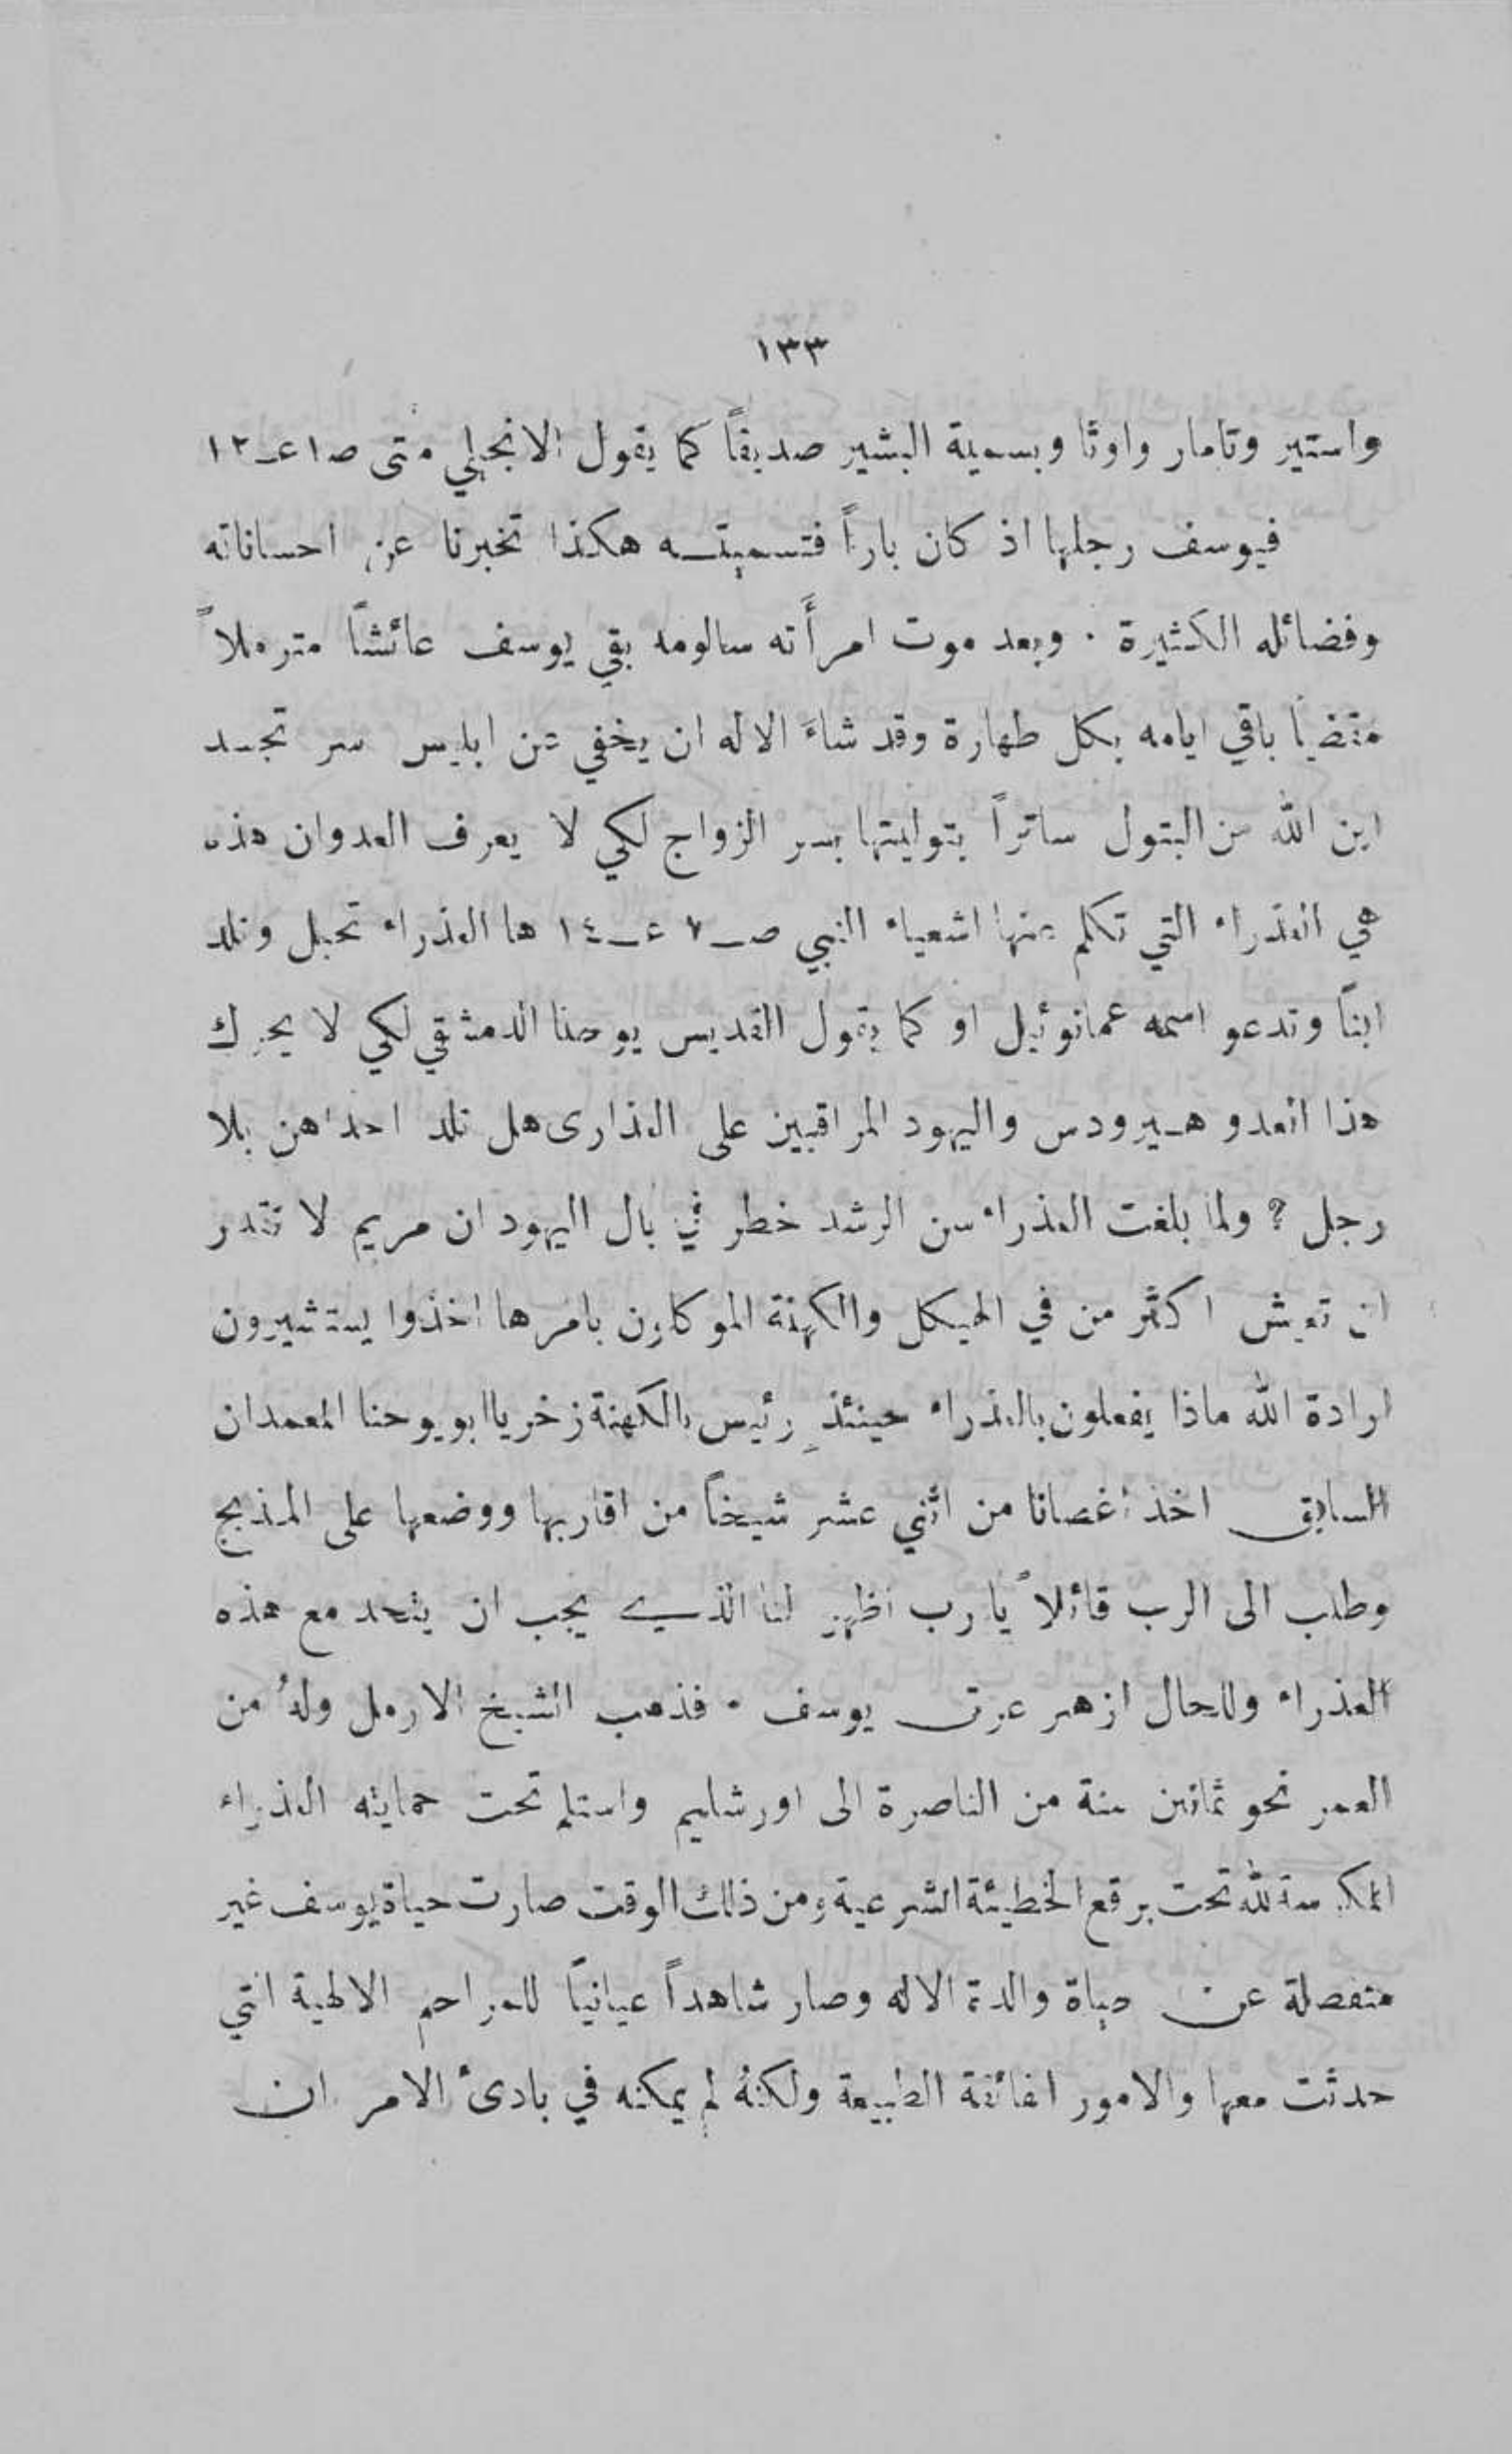 ١٣٣
واستير وتامار واوثا وبسمية البشير صديقاً كما يقول الانجيلي متى ص١ع-١٢
فيوسف رجلها اذ كان باراً فتسميته هكذا تخبرنا عن احساناته
وفضائله الكثيرة . وبعد موت امرأته سالومه بقي يوسف عائشاً مترملاً
مقضياً باقي ايامه بكل طهارة وقد شاءَ الاله ان يخفي عن ابليس سر تجسد
ابن الله من البتول ساتراً بتوليتها بسر الزواج لكي لا يعرف العدوان هذه
هي العذراء التي تكلم عنها اشعياء النبي ص-٧ ع-١٤ ها العذراء تحبل وتلد
ابناً وتدعو اسمه عمانوئيل او كما يقول القديس يوحنا الدمشقي لكي لا يحرك
هذا العدو هيرودس واليهود المراقبين على العذارى هل تلد احداهن بلا
رجل ؟ ولما بلغت العذراء سن الرشد خطر في بال اليهود ان مريم لا تقدر
ان تعيش اكثر من في الهيكل والكهنة الموكلون بامرها اخذوا يستشيرون
ارادة الله ماذا يفعلون بالعذراء حينئذٍ رئيس الكهنة زخريا ابو يوحنا المعمدان
السابق اخذ أغصانا من اثني عشر شيخاً من اقاربها ووضعها على المذبح
وطلب الى الرب قائلاً يا رب اظهر لنا الذي يجب ان يتحد مع هذه
العذراء وللحال ازهر عرق يوسف . فذهب الشيخ الارمل ولهُ من
العمر نحو ثمانين سنة من الناصرة الى اورشليم واستلم تحت حمايته العذراء
المكرسة لله تحت برقع الخطيئة الشرعية ومن ذلك الوقت صارت حياة يوسف غير
منفصلة عن حياة والدة الاله وصار شاهداً عيانياً للمراحم الالهية التي
حدثت معها والامور الفائقة الطبيعة ولكنهُ لم يمكنه في بادئ الامر ان